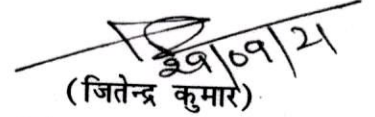 29/09/21
(जितेन्द्र कुमार)